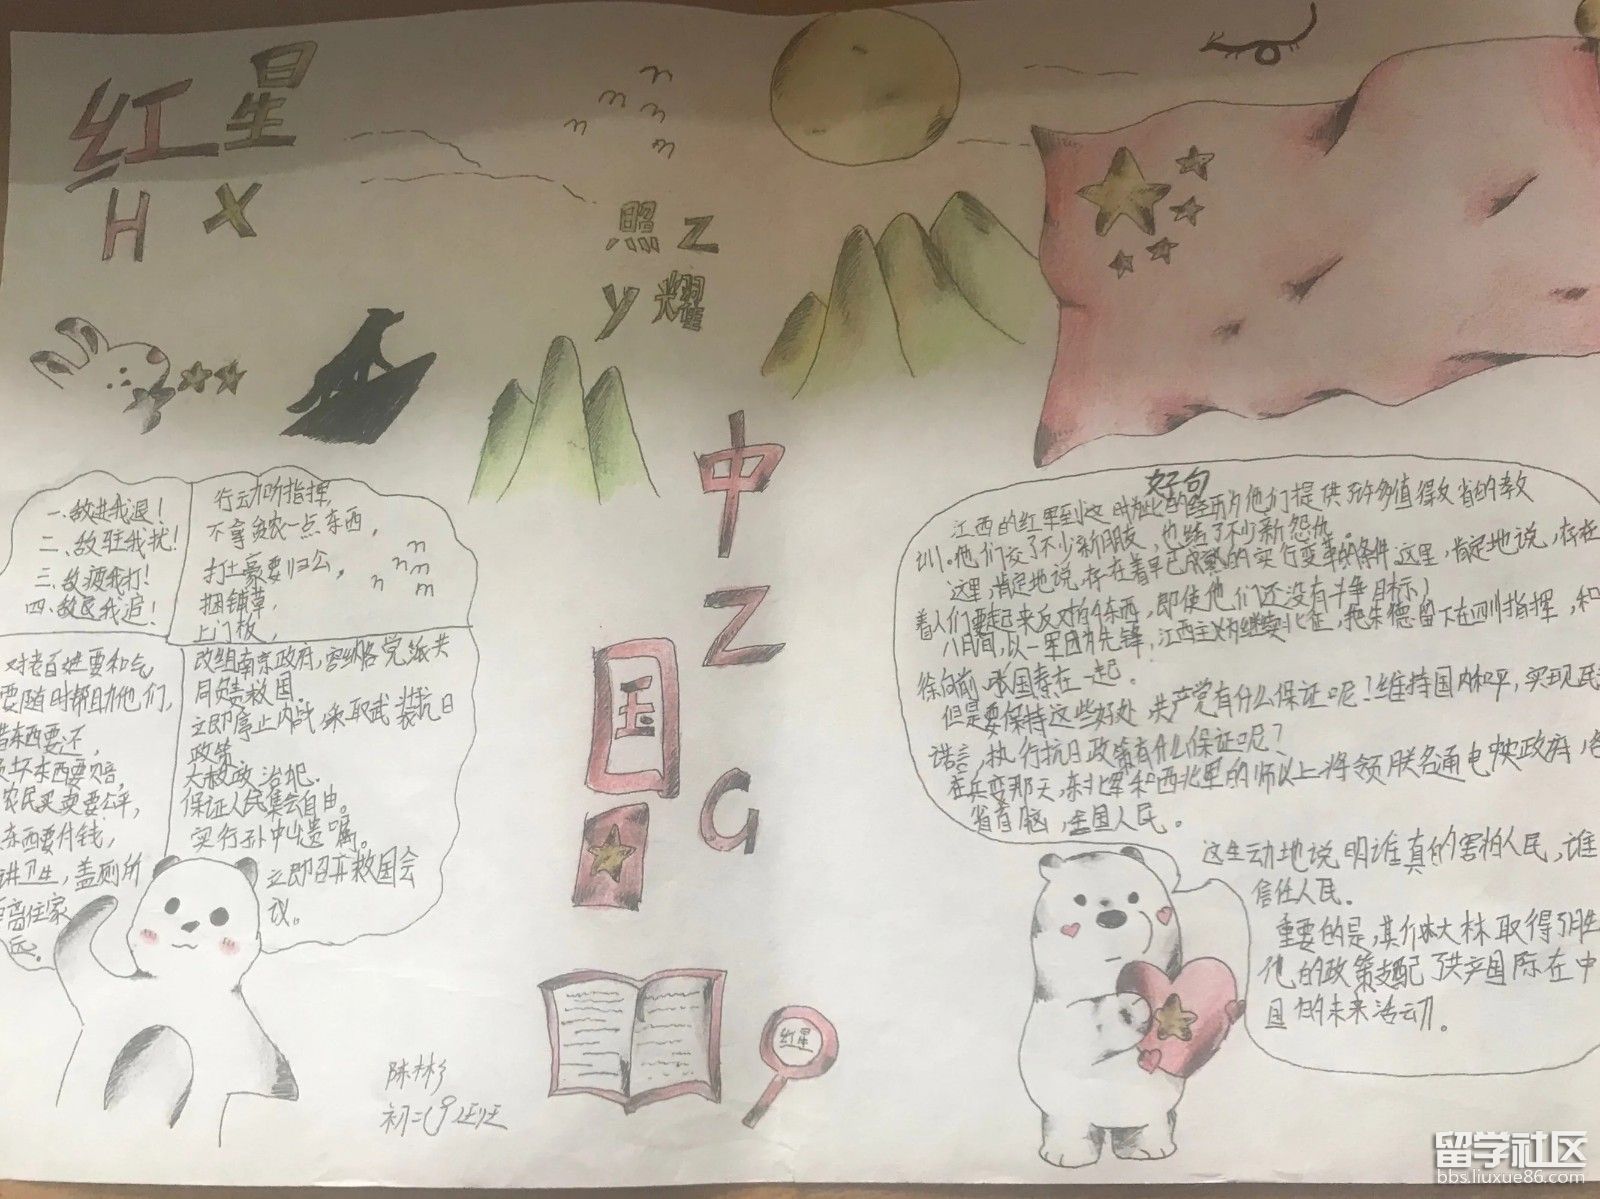 红星
H X
照 Z
y 耀
中
Z
国
G
一、敌进我退!
二、敌驻我扰!
三、敌疲我打!
四、敌退我追!
行动听指挥,
不拿贫农一点东西,
打土豪要归公,
捆铺草,
上门板,
对老百姓要和气
要随时帮助他们,
借东西要还,
坏东西要赔,
农民买卖要公平,
东西要付钱,
讲卫生,盖厕所
离住家
远。
改组南京政府,容纳各党派共
同负责救国。
立即停止内战,采取武装抗日
政策
大赦政治犯.
保证人民集会自由。
实行孙中山遗嘱。
立即召开救国会
议。
好句
江西的红军到这时为止的经历为他们提供了许多值得反省的教
训。他们交了不少新朋友,也结了不少新怨仇。
这里,肯定地说,存在着早已成熟的实行变革的条件.这里,肯定地说,存在
着人们要起来反对的东西,即使他们还没有斗争目标!
八月间,以一军团为先锋,江西主力继续北征,把朱德留下在四川指挥,和
徐向前、张国焘在一起.
但是要保持这些好处,共产党有什么保证呢!维持国内和平,实现民
诺言,执行抗日政策有什么保证呢?
在兵变那天,东北军和西北军的师以上将领联名通电中央政府,各
省首脑,全国人民。
这生动地说明谁真的害怕人民,谁
信任人民.
重要的是,其价林大林取得了胜
他的政策支配了共产国际在中
国的未来活动。
红星
陈彬
初二(9)班
留学社区
bbs.liuxue86.com